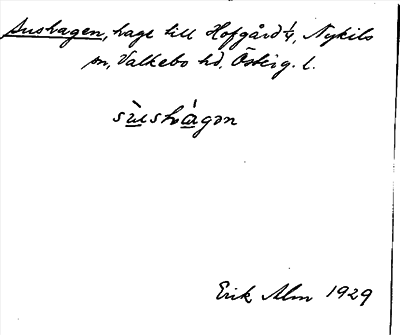 Sushagen, hage till Hofgård 1/4, Nykils
sn, Valkebo hd, Österg. l.
sùshágən
Erik Alm 1929